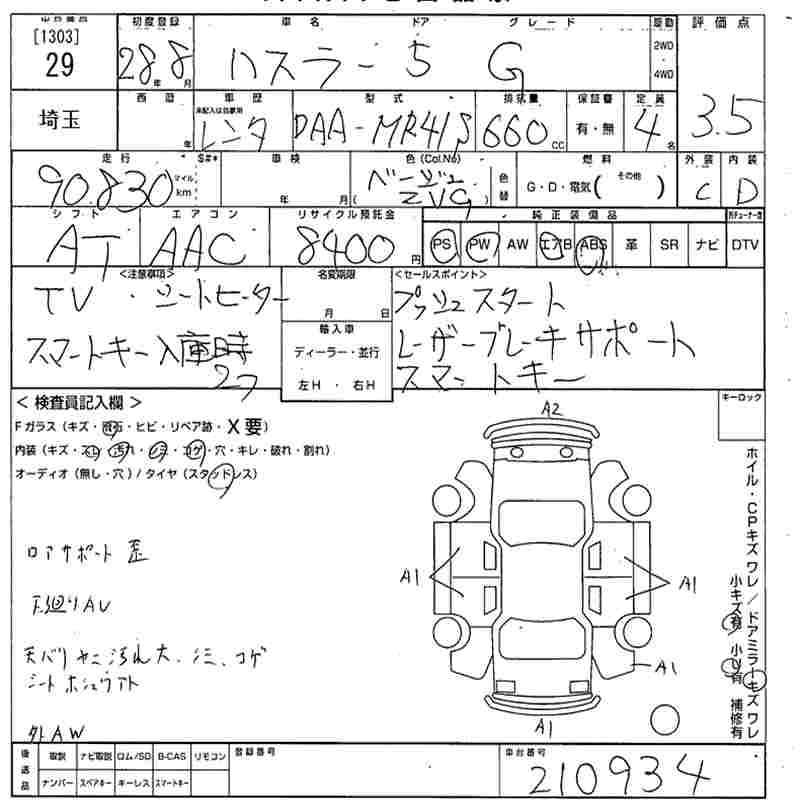 [1303]
29
初度登録
28 年 8 月
車名 ドア グレード
ハスラー 5 G
駆動
2WD
4WD
評価点
3.5
埼玉
西暦
年
車歴
未記入は自家用
レンタ
型式
DAA-MR41S
排気量
660 cc
保証書
有・無
定員
4 名
走行
90.830 マイル km
S#*
車検
年 月
色 (Col.No)
ベージュ
( ZVG )
色替
燃料
G・D・電気 ( その他 )
外装
C
内装
D
シフト
AT
エアコン
AAC
リサイクル預託金
8400 円
純正装備品
PS PW AW エアB ABS 革 SR ナビ DTV
<注意事項>
TV・シートヒーター
スマートキー入庫時
2コ
名変期限
月 日
輸入車
ディーラー・並行
左H・右H
<セールスポイント>
プッシュスタート
レーザーブレーキサポート
スマートキー
キーロック
< 検査員記入欄 >
Fガラス (キズ・飛石・ヒビ・リペア跡・X要)
内装 (キズ・スレ・汚れ・シミ・コゲ・穴・キレ・破れ・割れ)
オーディオ (無し・穴) / タイヤ (スタッドレス)
ロアサポート 歪
下廻りAU
天バリヤニ汚れ大、シミ、コゲ
シートホシュウアト
外AW
A2
A1
A1
A1
A1
ホイル・CPキズ ワレ / ドアミラーキズ ワレ
小キズ有 / 小U有 補修有
後送品
取説 ナビ取説 ロム/SD B-CAS リモコン
ナンバー スペアキー キーレス スマートキー
登録番号
車台番号
210934